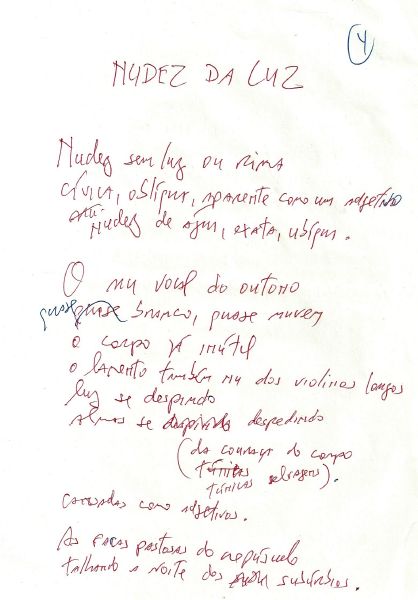 4
NUDEZ DA LUZ
Nudez sem luz ou rima
cívica, oblíqua, aparente como um adjetivo
Nudez de água, exata, ubíqua.
O nu vocal do outono
quase branco, quase nuvem
o corpo já inútil
o lamento também nu dos violinos longos
luz se despindo
almas se despedindo
(da couraça do corpo
túnicas
túnicas selvagens).
cansadas como adjetivos.
As facas pastosas do crepúsculo
talhando a noite dos subúrbios.